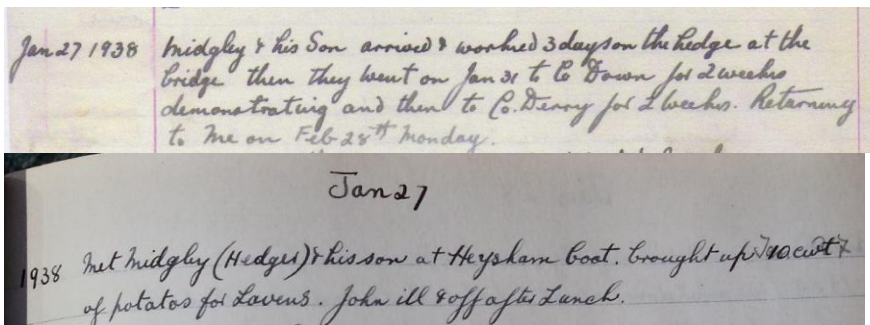 Jan 27 1938 Midgley & his Son arrived & worked 3 days on the hedge at the
bridge then they went on Jan 31 to Co Down for 2 weeks
demonstrating and then to Co. Derry for 2 weeks. Returning
to me on Feb 28th Monday.
Jan 27
1938 Met Midgley (Hedger) & his son at Heysham boat. brought up 10 cwt
of potatos for Lavens. John ill & off after Lunch.